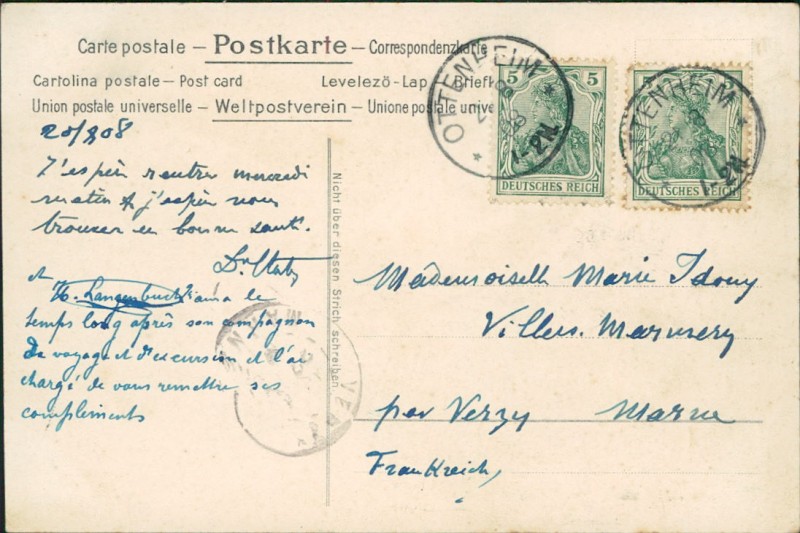 Carte postale — Postkarte — Correspondenzkarte
Cartolina postale — Post card Levelező-Lap — Briefk
Union postale universelle — Weltpostverein — Unione postale unive
OTTENHEIM
1-2N.
5 5
DEUTSCHES REICH
OTTENHEIM
1-2N.
DEUTSCHES REICH
20/2 08
J'espère rentrer mercredi
matin & j'espère vous
trouver en bonne santé.
Dr
et
H. Langenbuch aura le
temps long après son compagnon
de voyage et d'excursion et l'a
chargé de vous remettre ses
compliments
Nicht über diesen Strich schreiben
Mademoiselle Marie Idouy
Villers. Marmery
par Verzy Marne
Frankreich,